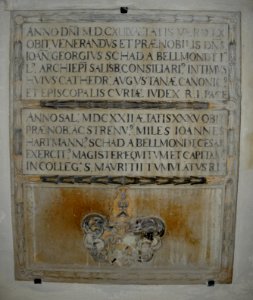 ANNO DNI M.D.C XLIX ÆTATIS
OBIIT VENERANDUS ET PRÆNOBILIS DNS
IOAN: GEORGIUS SCHAD A BELLMONDT
ARCHIEPI SALISB CONSILIARI' INTIMUS
HVIVS CATHEDR AVGVSTANÆ CANONIC'
ET EPISCOPALIS CVRIÆ IVDEX R.I. PACE
ANNO SAL. MDCXXII ÆTATIS XXXV OBI
PRÆNOB. AC STRENV' MILES IOANNES
HARTMANN' SCHAD A BELLMONDT CÆSAR
EXERCIT' MAGISTER EQVITVM ET CAPITAN
IN COLLEG' S. MAVRITII TVMVLATVS R.I.